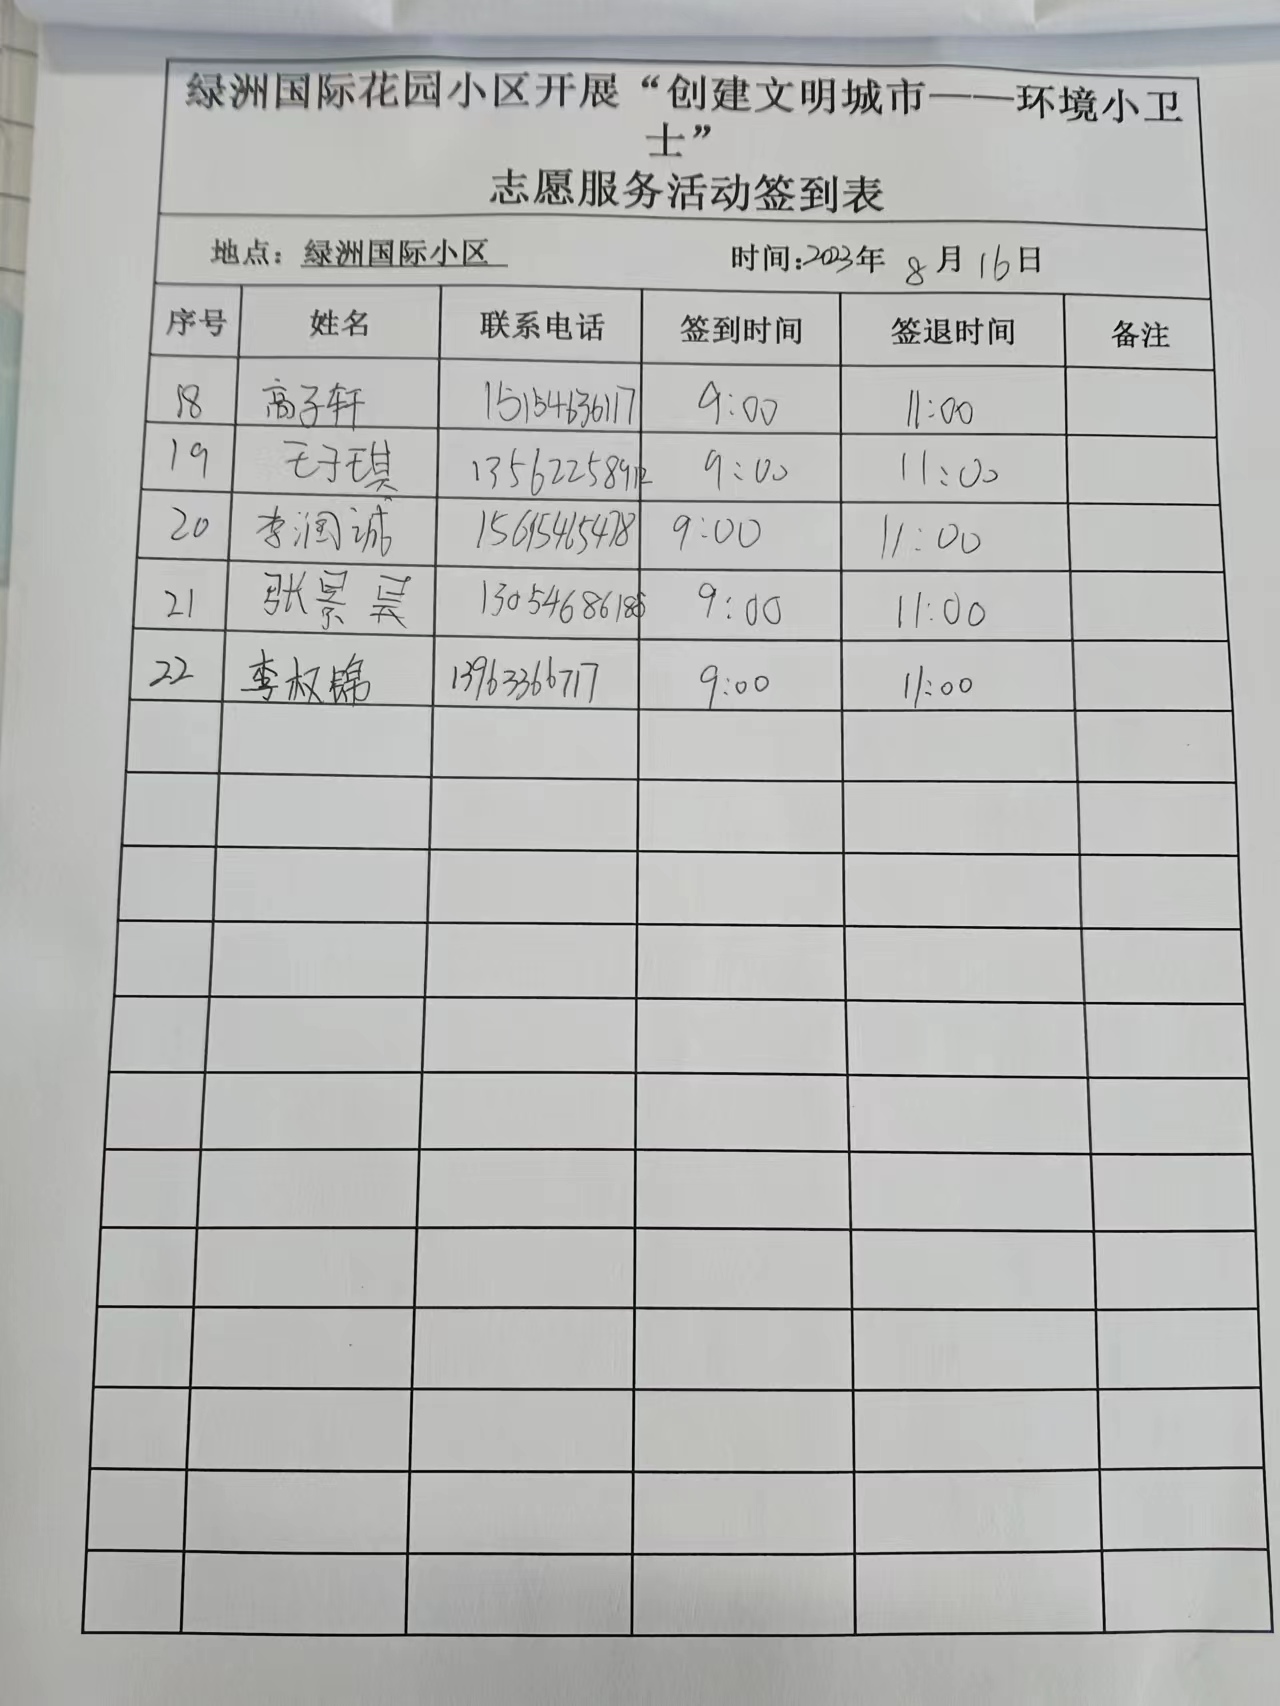 绿洲国际花园小区开展“创建文明城市——环境小卫
士”
志愿服务活动签到表
地点：绿洲国际小区 时间：2023年 8月 16日
序号 姓名 联系电话 签到时间 签退时间 备注
18 高子轩 15154636117 9:00 11:00
19 王子琪 13562258912 9:00 11:00
20 李润诚 15615465478 9:00 11:00
21 张景昊 13054686186 9:00 11:00
22 李权锦 13963366717 9:00 11:00